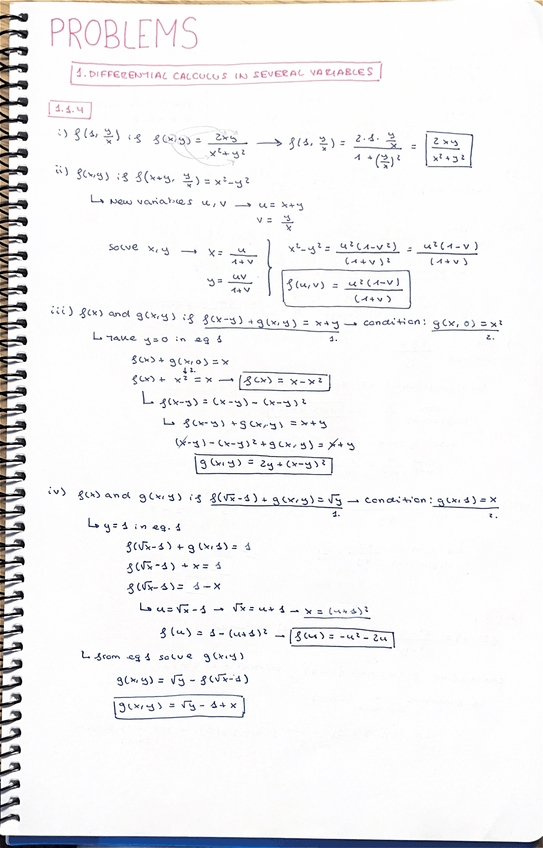 PROBLEMS
1. DIFFERENTIAL CALCULUS IN SEVERAL VARIABLES
1.1.4
i) f(1, y/x) if f(x,y) = 2xy / (x²+y²) → f(1, y/x) = (2·1·y/x) / (1+(y/x)²) = 2xy / (x²+y²)
ii) f(x,y) if f(x+y, y/x) = x²-y²
↳ New variables u,v → u = x+y
v = y/x
solve x,y → x = u/(1+v)
y = uv/(1+v)
x²-y² = u²(1-v²)/(1+v)² = u²(1-v)/(1+v)
f(u,v) = u²(1-v)/(1+v)
iii) f(x) and g(x,y) if f(x-y) + g(x,y) = x+y → condition: g(x,0) = x²
1. 2.
↳ Take y=0 in eq 1
f(x) + g(x,0) = x
↓2.
f(x) + x² = x → f(x) = x-x²
↳ f(x-y) = (x-y) - (x-y)²
↳ f(x-y) + g(x,y) = x+y
(x-y) - (x-y)² + g(x,y) = x+y
g(x,y) = 2y + (x-y)²
iv) f(x) and g(x,y) if f(√x-1) + g(x,y) = √y → condition: g(x,1) = x
1. 2.
↳ y=1 in eq. 1
f(√x-1) + g(x,1) = 1
f(√x-1) + x = 1
f(√x-1) = 1-x
↳ u = √x-1 → √x = u+1 → x = (u+1)²
f(u) = 1-(u+1)² → f(u) = -u²-2u
↳ from eq 1 solve g(x,y)
g(x,y) = √y - f(√x-1)
g(x,y) = √y - 1 + x